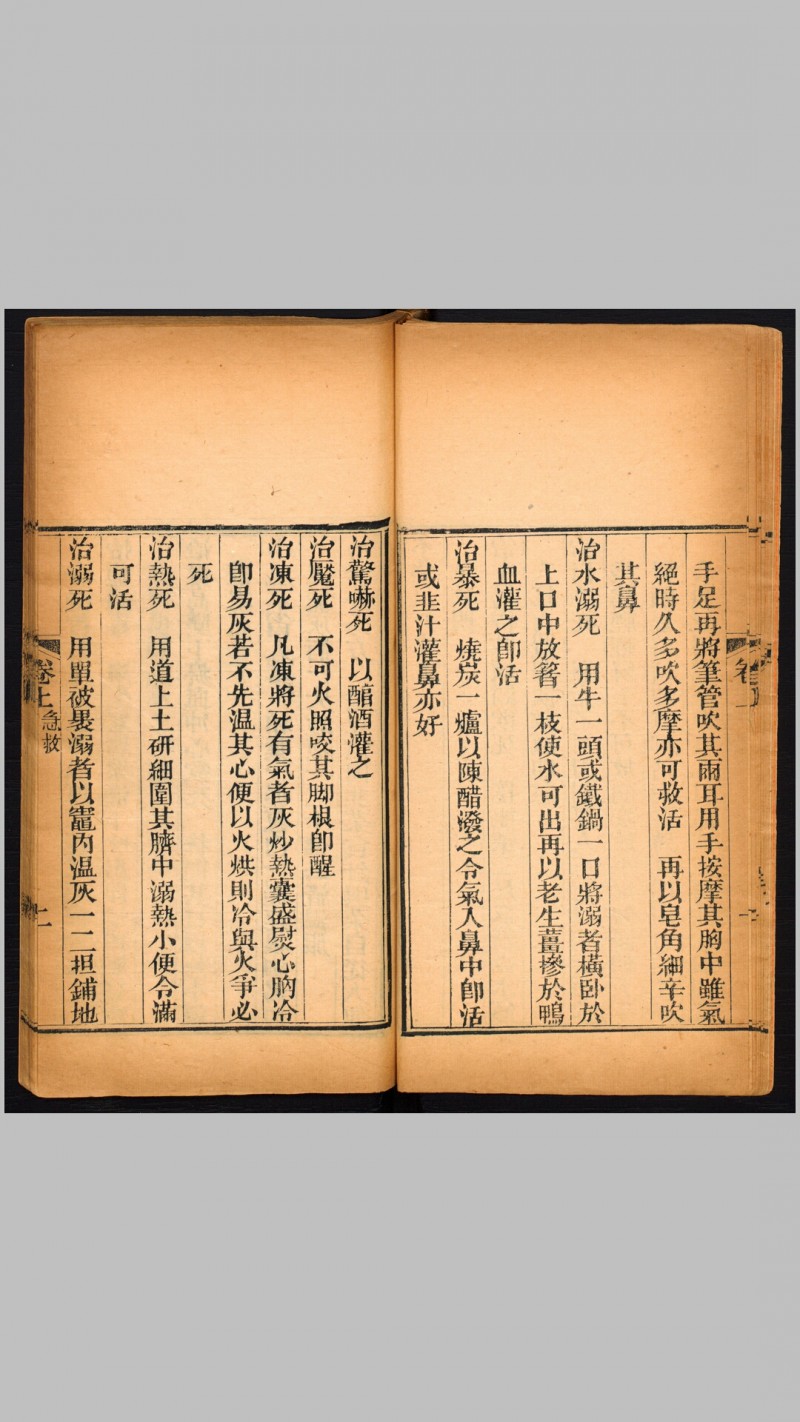 手足再將筆管吹其兩耳用手按摩其胸中雖氣
絕時久多吹多摩亦可救活　再以皂角細辛吹
其鼻
治水溺死　用牛一頭或鐵鍋一口將溺者橫卧於
上口中放箸一枝使水可出再以老生薑摻於鴨
血灌之卽活
治暴死　燒炭一爐以陳醋潑之令氣入鼻中卽活
或韭汁灌鼻亦好
治驚嚇死　以醕酒灌之
治魘死　不可火照咬其脚根卽醒
治凍死　凡凍將死有氣者灰炒熱囊盛熨心胸冷
卽易灰若不先温其心便以火烘則冷與火爭必
死
治熱死　用道上土研細圍其臍中溺熱小便令滿
可活
治溺死　用單被裹溺者以竈內温灰一二担鋪地
卷上 急救